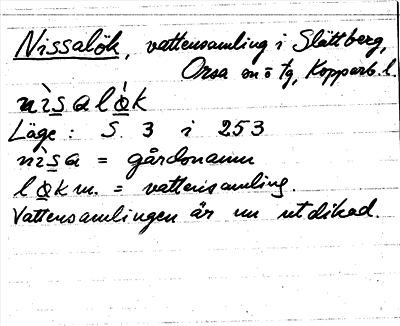 Nissalök, vattensamling i Slättberg,
Orsa sn o tg, Kopparb. l.
nìsalö̀k
Läge: S. 3 i 253
nìsa = gårdsnamn
lök m. = vattensamling.
Vattensamlingen är nu utdikad.